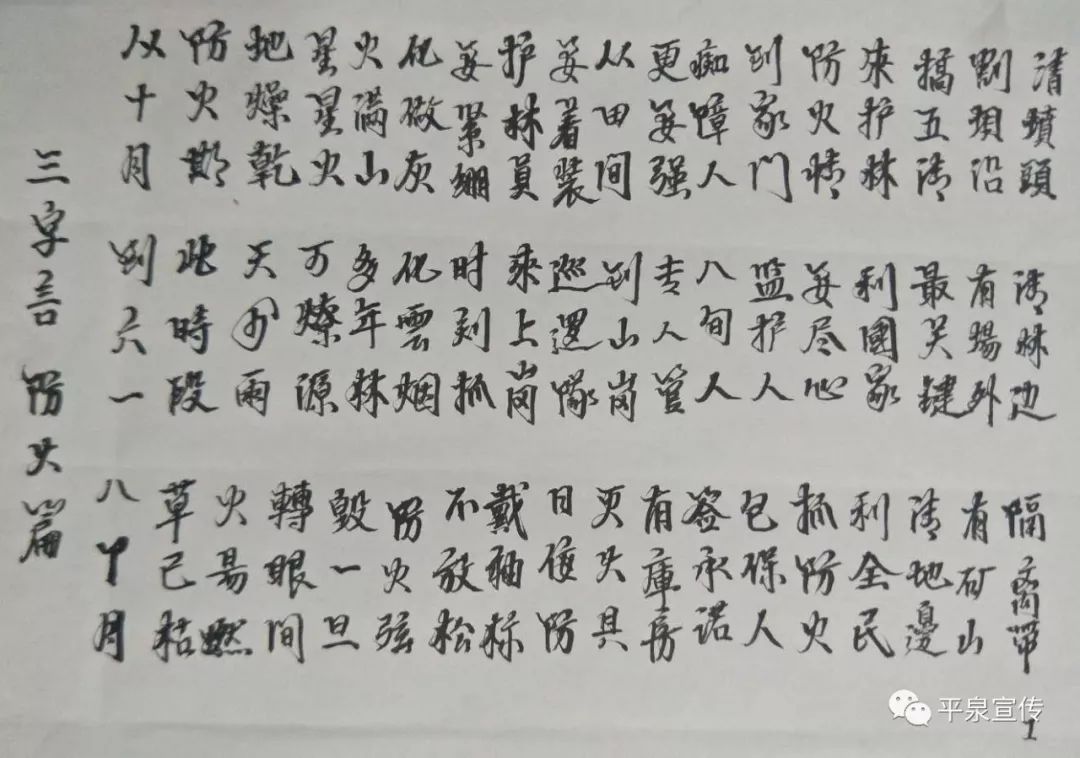 三字言 防火篇
从十月 到六一 八个月
防火期 此時段 草已枯
地燥乾 天少雨 火易燃
星星火 可燎源 轉眼间
火满山 多年林 毁一旦
化做灰 化雲烟 防火弦
要紧绷 时刻抓 不放松
护林員 来上岗 戴袖标
要着装 巡邏隊 日夜防
从田间 到山岗 灭火具
更要强 专人管 有庫房
痴障人 八旬人 签承诺
到家门 监护人 包保人
防火情 要尽心 抓防火
来护林 利國家 利全民
搞五清 最关键 清地邊
割垻沿 有場外 有矿山
清墳頭 清林边 隔离带
1
平泉宣传